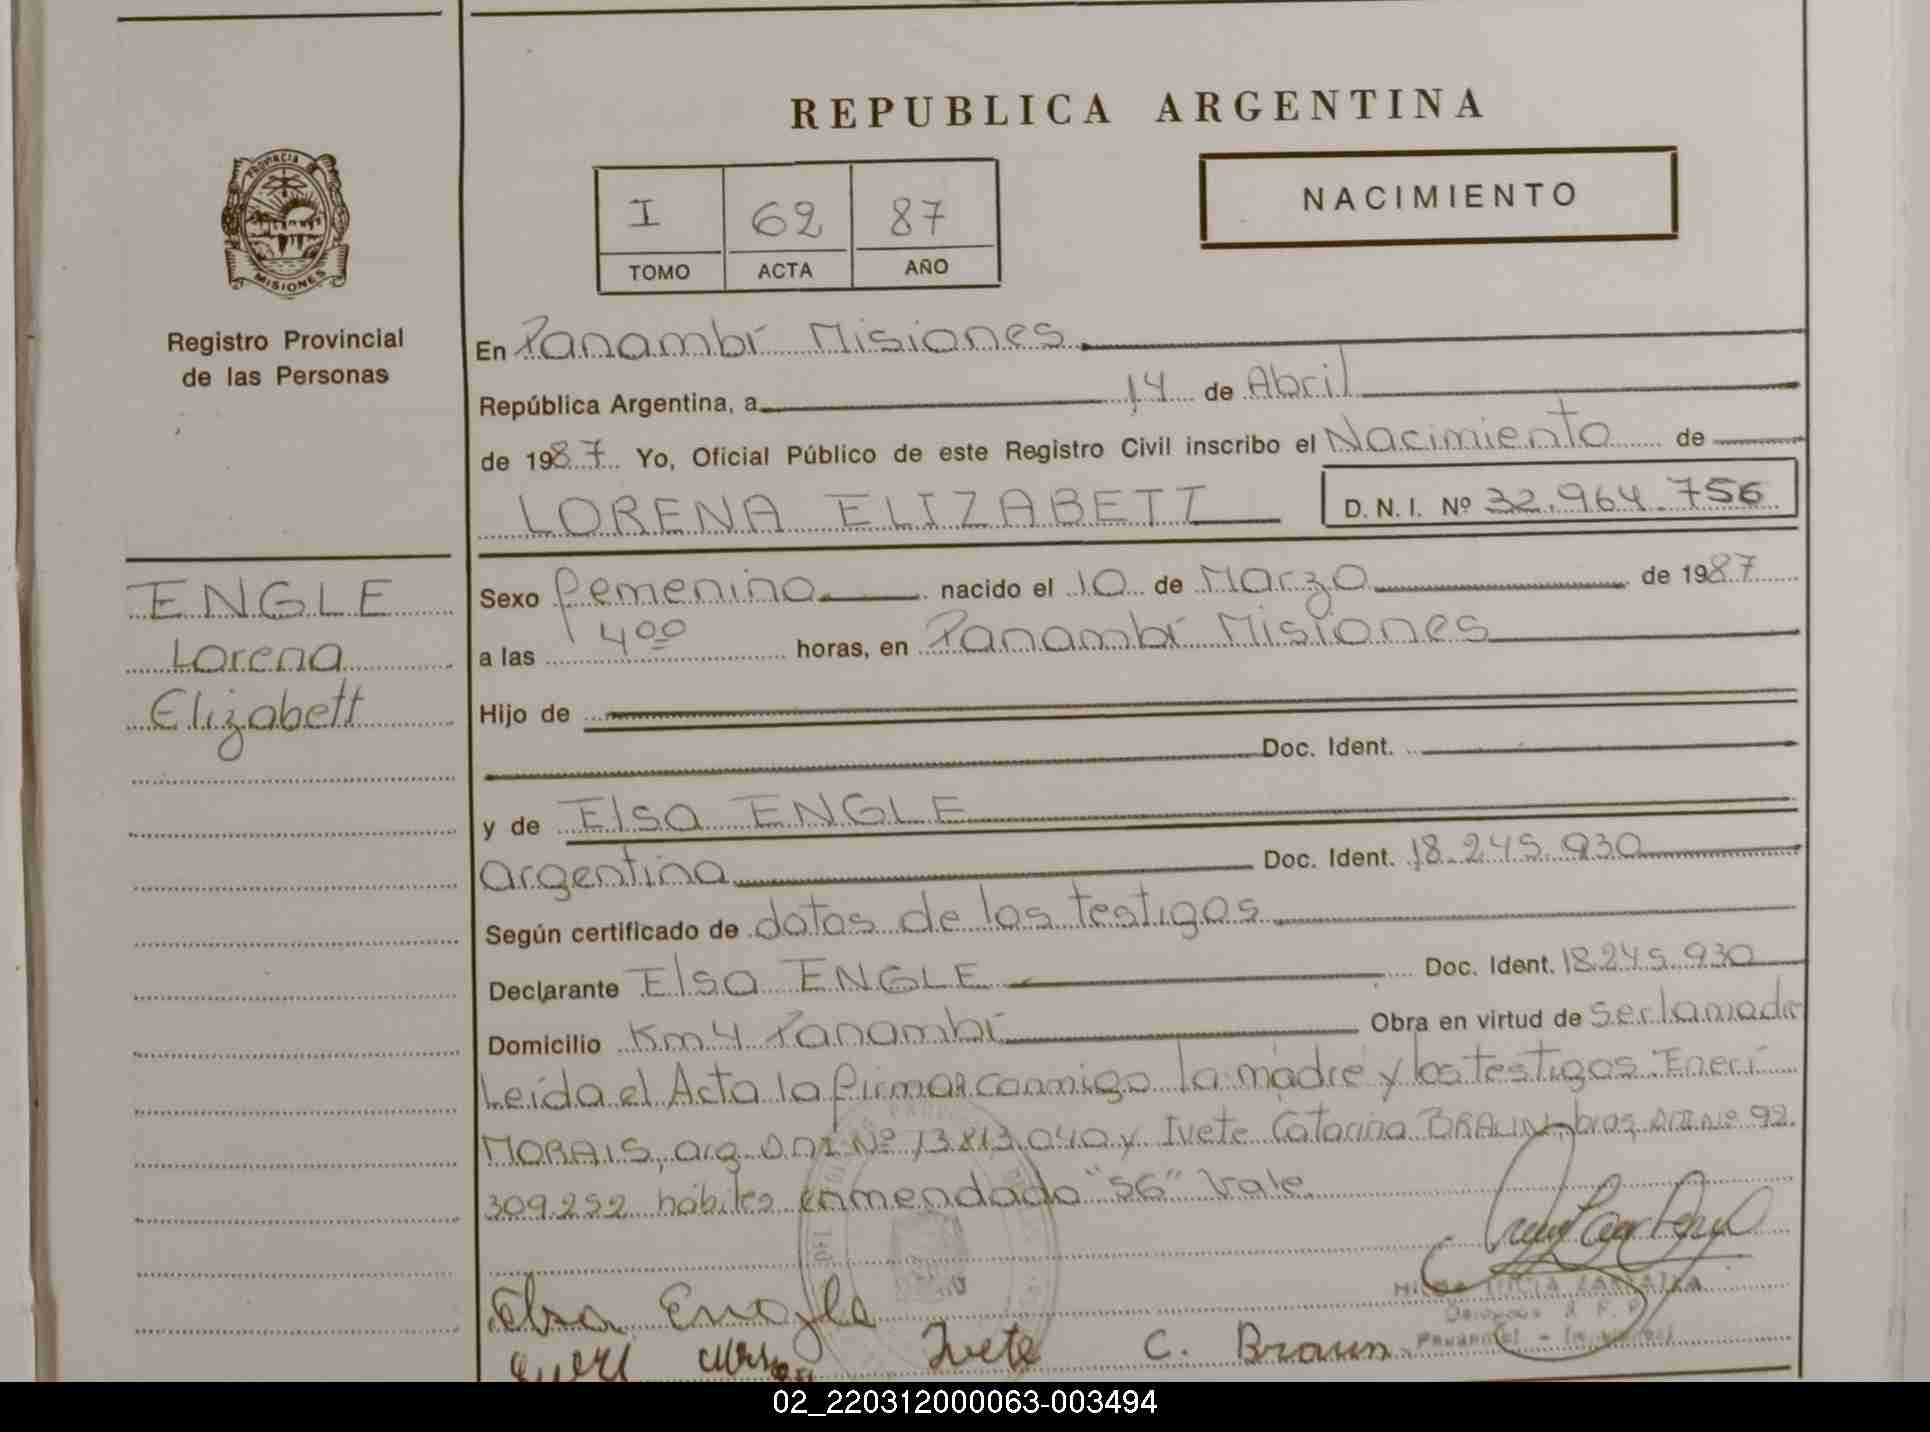 REPUBLICA ARGENTINA
PROVINCIA DE
MISIONES
Registro Provincial
de las Personas
I 62 87
TOMO ACTA AÑO
NACIMIENTO
En Panambí Misiones
República Argentina, a 14 de Abril
de 1987 Yo, Oficial Público de este Registro Civil inscribo el Nacimiento de
LORENA ELIZABETT D. N. I. Nº 32.964.756
ENGLE
Lorena
Elizabett
Sexo femenino nacido el 10 de Marzo de 1987
a las 4 00 horas, en Panambí Misiones
Hijo de
Doc. Ident.
y de Elsa ENGLE
argentina Doc. Ident. 18.245.930
Según certificado de datos de los testigos
Declarante Elsa ENGLE Doc. Ident. 18.245.930
Domicilio Km 4 Panambí Obra en virtud de ser la madre
Leída el Acta la firman conmigo la madre y los testigos: Enerí
MORAIS, arg. DNI Nº 13.813.040 y Ivete Catarina BRAUN, bras, DNI Nº 92.
309.252 hábiles enmendado "56" Vale
Elsa Engle
Ivete C. Braun
02_220312000063-003494